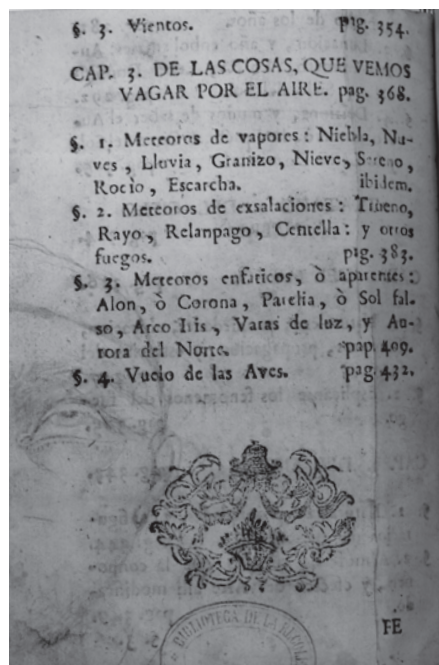 §. 3. Vientos. pag. 354.
CAP. 3. DE LAS COSAS, QUE VEMOS
VAGAR POR EL AIRE. pag. 368.
§. 1. Meteoros de vapores: Niebla, Nu-
ves, Lluvia, Granizo, Nieve, Sereno,
Rocio, Escarcha. ibidem.
§. 2. Meteoros de exsalaciones: Trueno,
Rayo, Relanpago, Centella: y otros
fuegos. pag. 383.
§. 3. Meteoros enfaticos, ò aparentes:
Alon, ò Corona, Parelia, ò Sol fal-
so, Arco Iris, Varas de luz, y Au-
rora del Norte. pap. 409.
§. 4. Vuelo de las Aves. pag. 432.
BIBLIOTECA DE LA
FE